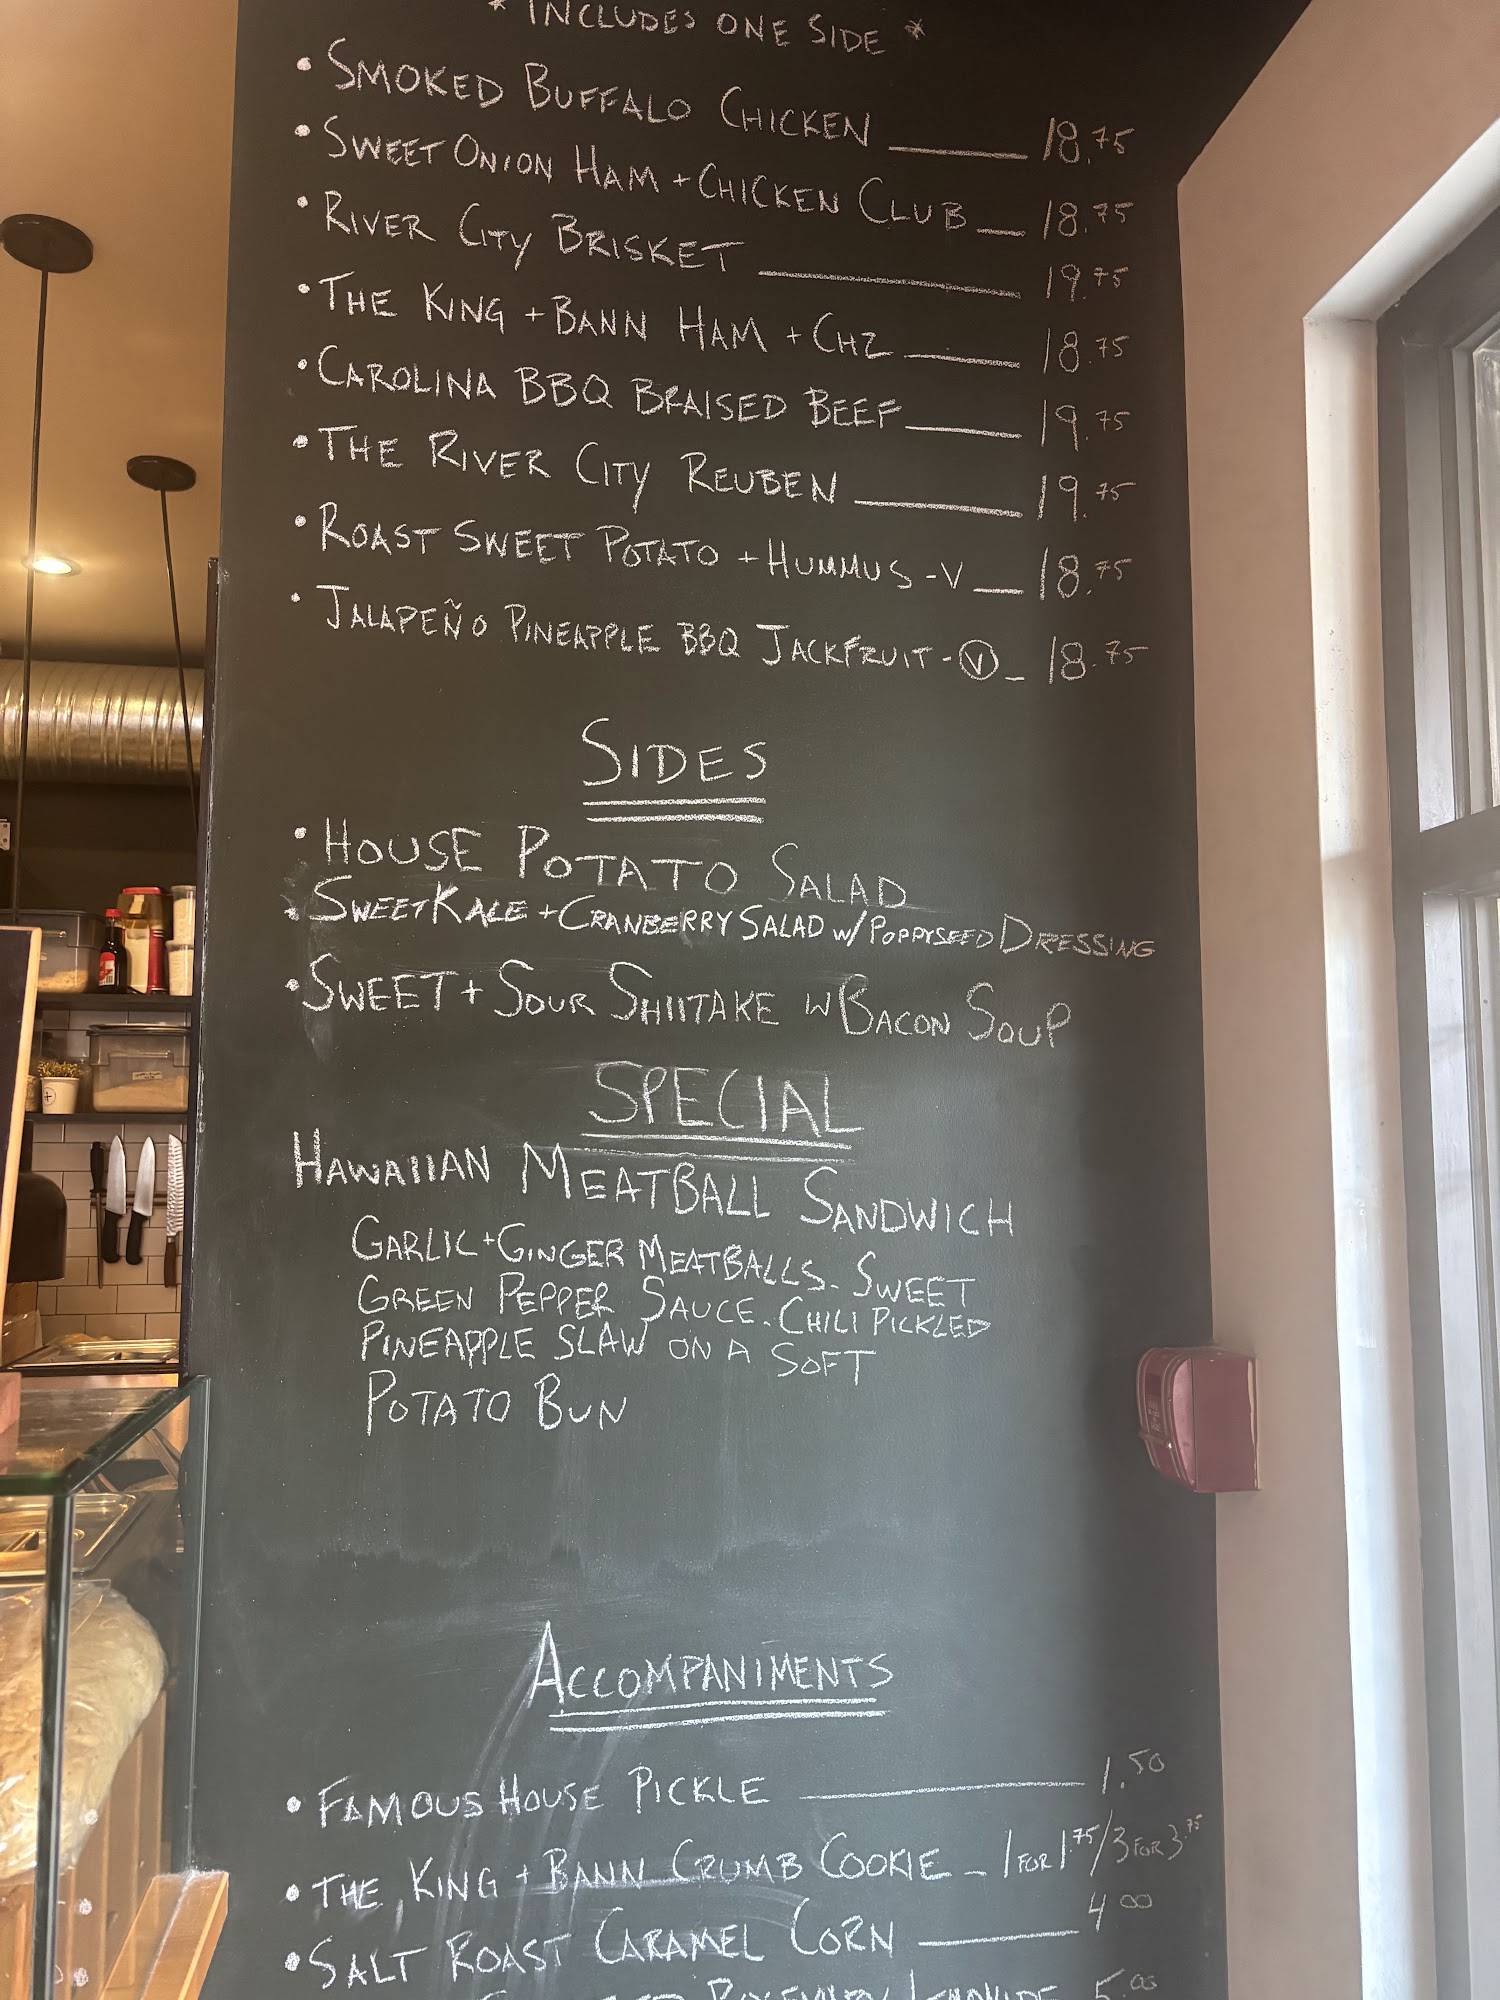 * INCLUDES ONE SIDE *
• SMOKED BUFFALO CHICKEN ____ 18.75
• SWEET ONION HAM + CHICKEN CLUB __ 18.75
• RIVER CITY BRISKET ____ 19.75
• THE KING + BANN HAM + CHZ ____ 18.75
• CAROLINA BBQ BRAISED BEEF ____ 19.75
• THE RIVER CITY REUBEN ____ 19.75
• ROAST SWEET POTATO + HUMMUS - V __ 18.75
• JALAPEÑO PINEAPPLE BBQ JACKFRUIT - Ⓥ _ 18.75
SIDES
• HOUSE POTATO SALAD
• SWEET KALE + CRANBERRY SALAD W/ POPPYSEED DRESSING
• SWEET + SOUR SHIITAKE W BACON SOUP
SPECIAL
HAWAIIAN MEATBALL SANDWICH
GARLIC + GINGER MEATBALLS. SWEET
GREEN PEPPER SAUCE. CHILI PICKLED
PINEAPPLE SLAW ON A SOFT
POTATO BUN
ACCOMPANIMENTS
• FAMOUS HOUSE PICKLE ____ 1.50
• THE KING + BANN CRUMB COOKIE _ 1 FOR 1.75 / 3 FOR 3.75
• SALT ROAST CARAMEL CORN ____ 4.00
ROSEMARY LEMONADE 5.00